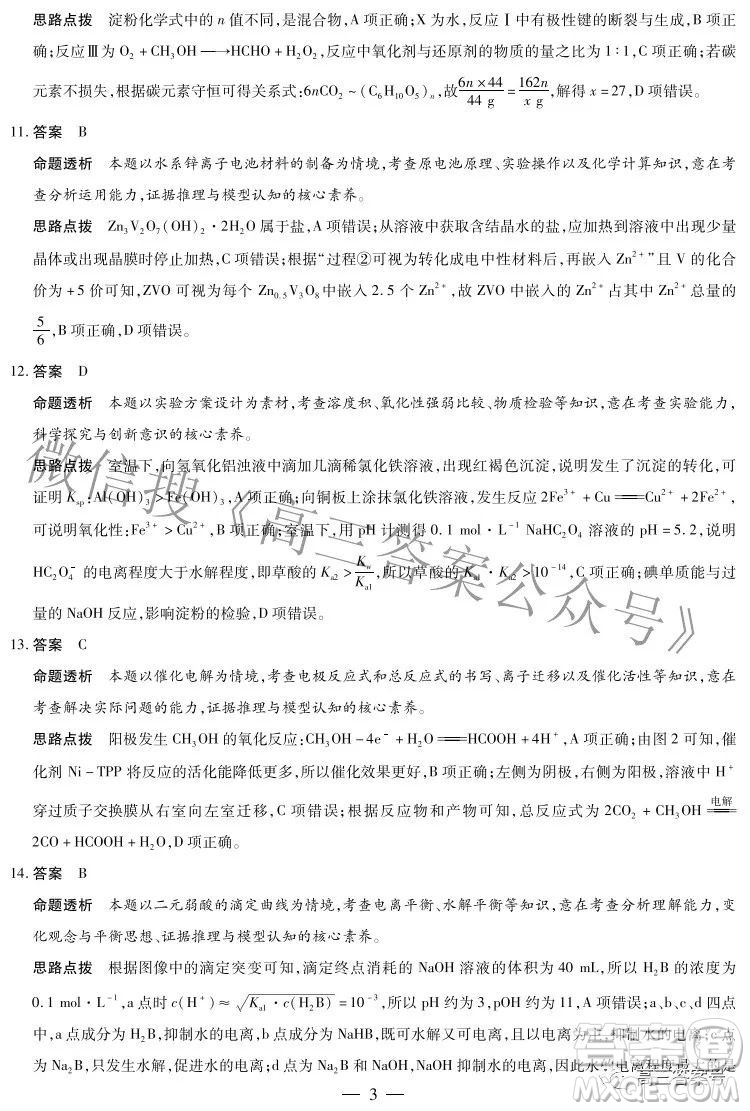 思路点拨 淀粉化学式中的 n 值不同,是混合物,A 项正确;X 为水,反应Ⅰ中有极性键的断裂与生成,B 项正
确;反应Ⅲ为 O₂ + CH₃OH ⟶ HCHO + H₂O₂,反应中氧化剂与还原剂的物质的量之比为 1∶1,C 项正确;若碳
元素不损失,根据碳元素守恒可得关系式:6nCO₂ ~ (C₆H₁₀O₅)ₙ,故 6n×44/44 g = 162n/x g,解得 x = 27,D 项错误。
11. 答案 B
命题透析 本题以水系锌离子电池材料的制备为情境,考查原电池原理、实验操作以及化学计算知识,意在考
查分析运用能力,证据推理与模型认知的核心素养。
思路点拨 Zn₃V₂O₇(OH)₂·2H₂O 属于盐,A 项错误;从溶液中获取含结晶水的盐,应加热到溶液中出现少量
晶体或出现晶膜时停止加热,C 项错误;根据“过程②可视为转化成电中性材料后,再嵌入 Zn²⁺”且 V 的化合
价为 +5 价可知,ZVO 可视为每个 Zn₀.₅V₃O₈ 中嵌入 2.5 个 Zn²⁺,故 ZVO 中嵌入的 Zn²⁺ 占其中 Zn²⁺ 总量的
5/6,B 项正确,D 项错误。
12. 答案 D
命题透析 本题以实验方案设计为素材,考查溶度积、氧化性强弱比较、物质检验等知识,意在考查实验能力,
科学探究与创新意识的核心素养。
思路点拨 室温下,向氢氧化铝浊液中滴加几滴稀氯化铁溶液,出现红褐色沉淀,说明发生了沉淀的转化,可
证明 Kₛₚ:Al(OH)₃ > Fe(OH)₃,A 项正确;向铜板上涂抹氯化铁溶液,发生反应 2Fe³⁺ + Cu ═══ Cu²⁺ + 2Fe²⁺,
可说明氧化性:Fe³⁺ > Cu²⁺,B 项正确;室温下,用 pH 计测得 0.1 mol·L⁻¹ NaHC₂O₄ 溶液的 pH = 5.2,说明
HC₂O₄⁻ 的电离程度大于水解程度,即草酸的 Kₐ₂ > K_w/Kₐ₁,所以草酸的 Kₐ₁·Kₐ₂ > 10⁻¹⁴,C 项正确;碘单质能与过
量的 NaOH 反应,影响淀粉的检验,D 项错误。
13. 答案 C
命题透析 本题以催化电解为情境,考查电极反应式和总反应式的书写、离子迁移以及催化活性等知识,意在
考查解决实际问题的能力,证据推理与模型认知的核心素养。
思路点拨 阳极发生 CH₃OH 的氧化反应:CH₃OH - 4e⁻ + H₂O ═══ HCOOH + 4H⁺,A 项正确;由图 2 可知,催
化剂 Ni - TPP 将反应的活化能降低更多,所以催化效果更好,B 项正确;左侧为阴极,右侧为阳极,溶液中 H⁺
穿过质子交换膜从右室向左室迁移,C 项错误;根据反应物和产物可知,总反应式为 2CO₂ + CH₃OH ═电解═
2CO + HCOOH + H₂O,D 项正确。
14. 答案 B
命题透析 本题以二元弱酸的滴定曲线为情境,考查电离平衡、水解平衡等知识,意在考查分析理解能力,变
化观念与平衡思想、证据推理与模型认知的核心素养。
思路点拨 根据图像中的滴定突变可知,滴定终点消耗的 NaOH 溶液的体积为 40 mL,所以 H₂B 的浓度为
0.1 mol·L⁻¹,a 点时 c(H⁺) ≈ √(Kₐ₁·c(H₂B)) = 10⁻³,所以 pH 约为 3,pOH 约为 11,A 项错误;a、b、c、d 四点
中,a 点成分为 H₂B,抑制水的电离,b 点成分为 NaHB,既可水解又可电离,且以电离为主,抑制水的电离;c 点
为 Na₂B,只发生水解,促进水的电离;d 点为 Na₂B 和 NaOH,抑制水的电离,因此水的电离程度最大的是
— 3 —
微信搜《高三答案公众号》
高三答案号